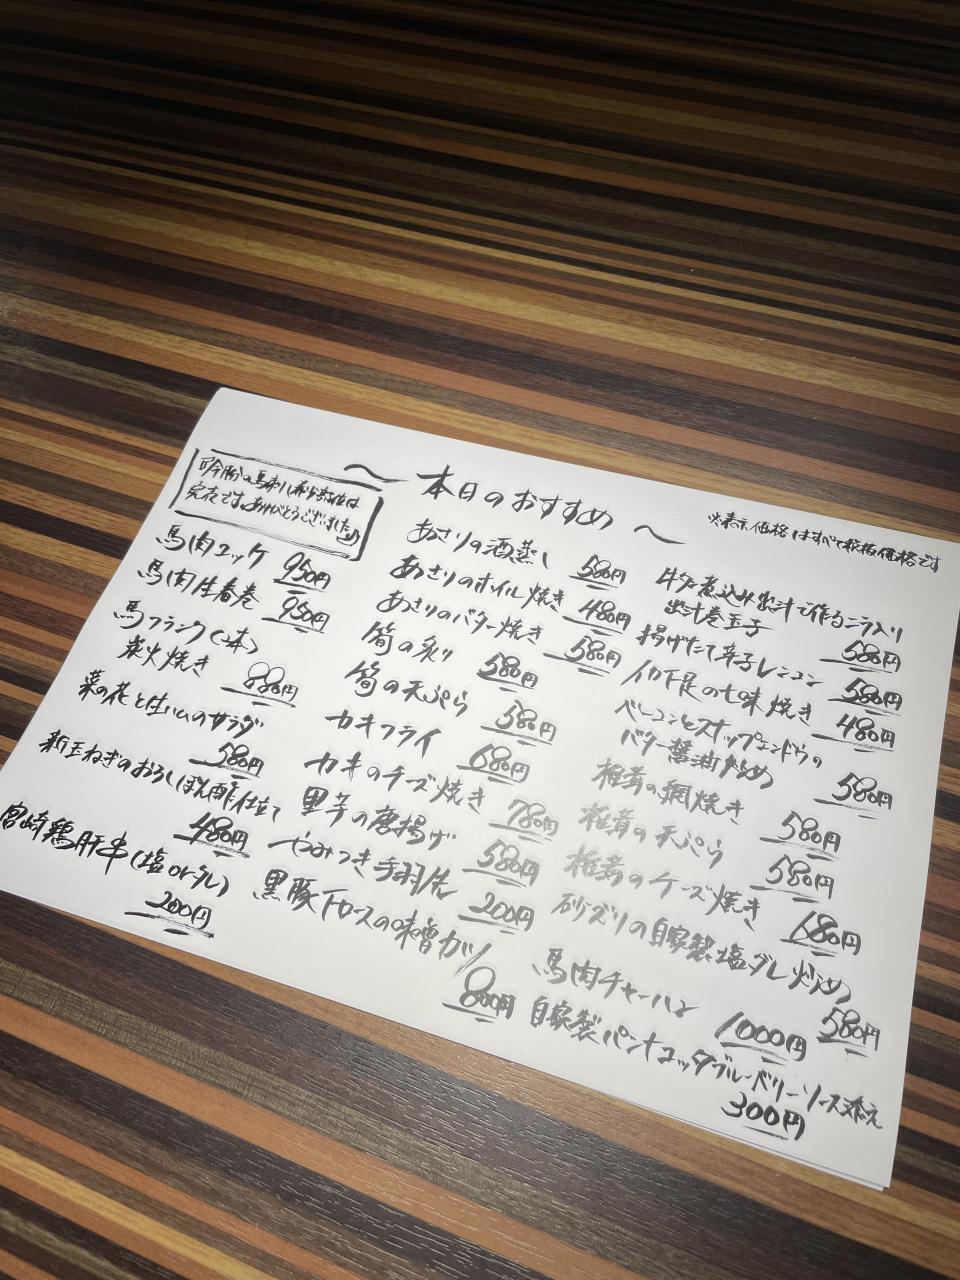 ~ 本日のおすすめ ~
※表示価格はすべて税抜価格です
今朝の馬刺し希少部位は
完売です。ありがとうございました
馬肉ユッケ 950円
馬肉生春巻 950円
馬フランク(2本)
炭火焼き 880円
菜の花と生ハムのサラダ
580円
新玉ねぎのおろしぽん酢仕立て
480円
宮崎鶏肝串(塩orタレ)
200円
あさりの酒蒸し 580円
あさりのホイル焼き 480円
あさりのバター焼き 580円
筍の炙り 580円
筍の天ぷら 580円
カキフライ 680円
カキのチーズ焼き 780円
里芋の唐揚げ 580円
やみつき手羽先 200円
黒豚下ロースの味噌カツ
800円
牛タン煮込み出汁で作るニラ入り
出汁巻玉子 580円
揚げたて辛子レンコン 580円
イカ下足の七味焼き 480円
ベーコンとスナップエンドウの
バター醤油炒め 580円
椎茸の網焼き 580円
椎茸の天ぷら 580円
椎茸のチーズ焼き 680円
砂ズリの自家製塩ダレ炒め
580円
馬肉チャーハン 1000円
自家製パンナコッタブルーベリーソース添え
300円